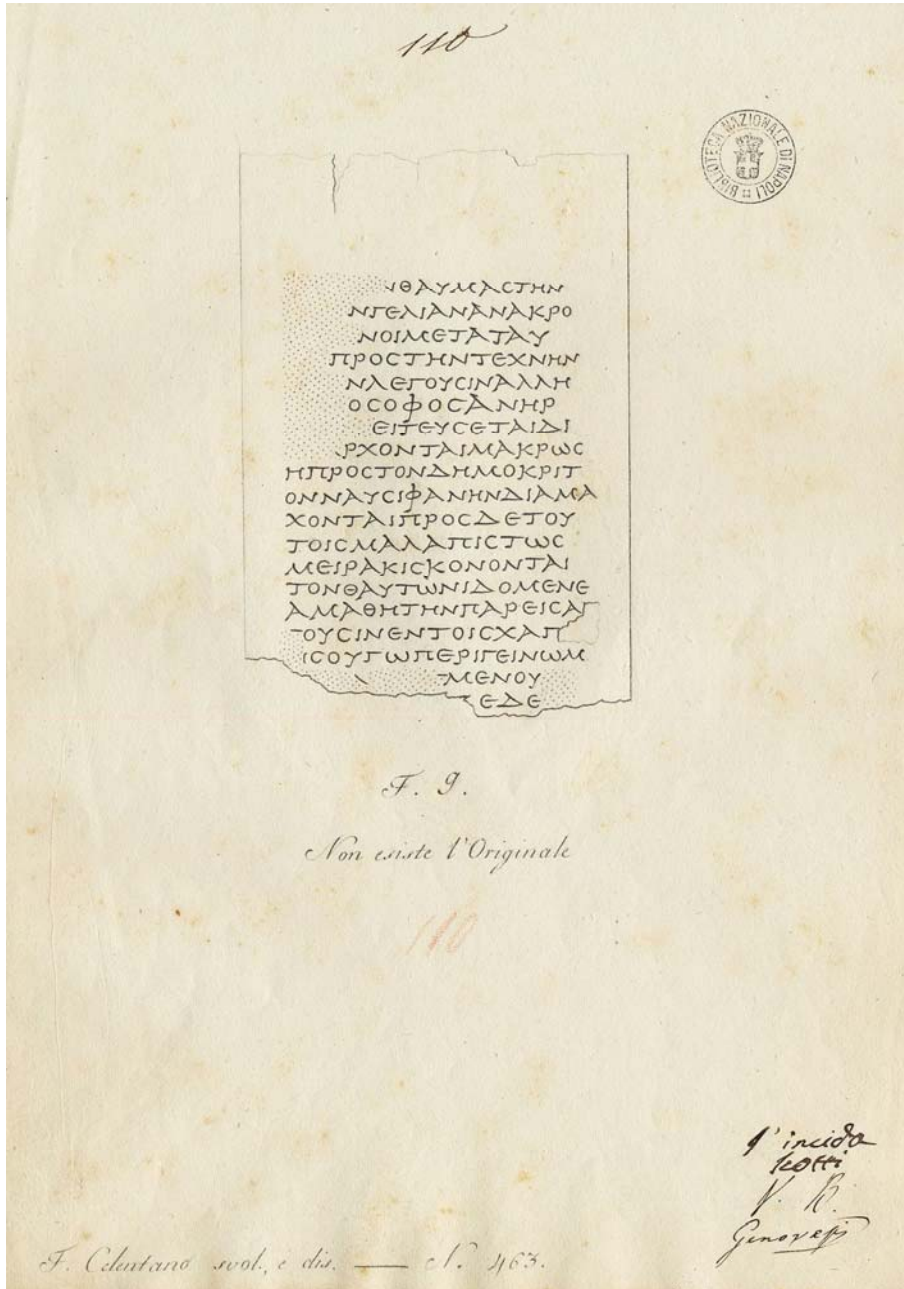 110
BIBLIOTECA NAZIONALE DI NAPOLI
ΝΘΑΥΜΑϹΤΗΝ
ΝΓΕΛΙΑΝΑΝΑΚΡΟ
ΝΟΙΜΕΤΑΤΑΥ
ΠΡΟϹΤΗΝΤΕΧΝΗΝ
ΝΛΕΓΟΥϹΙΝΑΛΛΗ
ΟϹΟΦΟϹΑΝΗΡ
ΕΙΤΕΥϹΕΤΑΙΔΙ
ΡΧΟΝΤΑΙΜΑΚΡΩϹ
ΗΠΡΟϹΤΟΝΔΗΜΟΚΡΙΤ
ΟΝΝΑΥϹΙΦΑΝΗΝΔΙΑΜΑ
ΧΟΝΤΑΙΠΡΟϹΔΕΤΟΥ
ΤΟΙϹΜΑΛΑΠΙϹΤΩϹ
ΜΕΙΡΑΚΙϹΚΟΝΟΝΤΑΙ
ΤΟΝΘΑΥΤΩΝΙΔΟΜΕΝΕ
ΑΜΑΘΗΤΗΝΠΑΡΕΙϹΑΓ
ΤΟΥϹΙΝΕΝΤΟΙϹΧΑΠ
ΙϹΟΥΓΩΠΕΡΙΓΕΙΝΩΜ
ΜΕΝΟΥ
ΕΔΕ
F. 9.
Non esiste l'Originale
110
s' incida
Scotti
V. B.
Genovesi
F. Celentano svol., e dis. — N. 463.